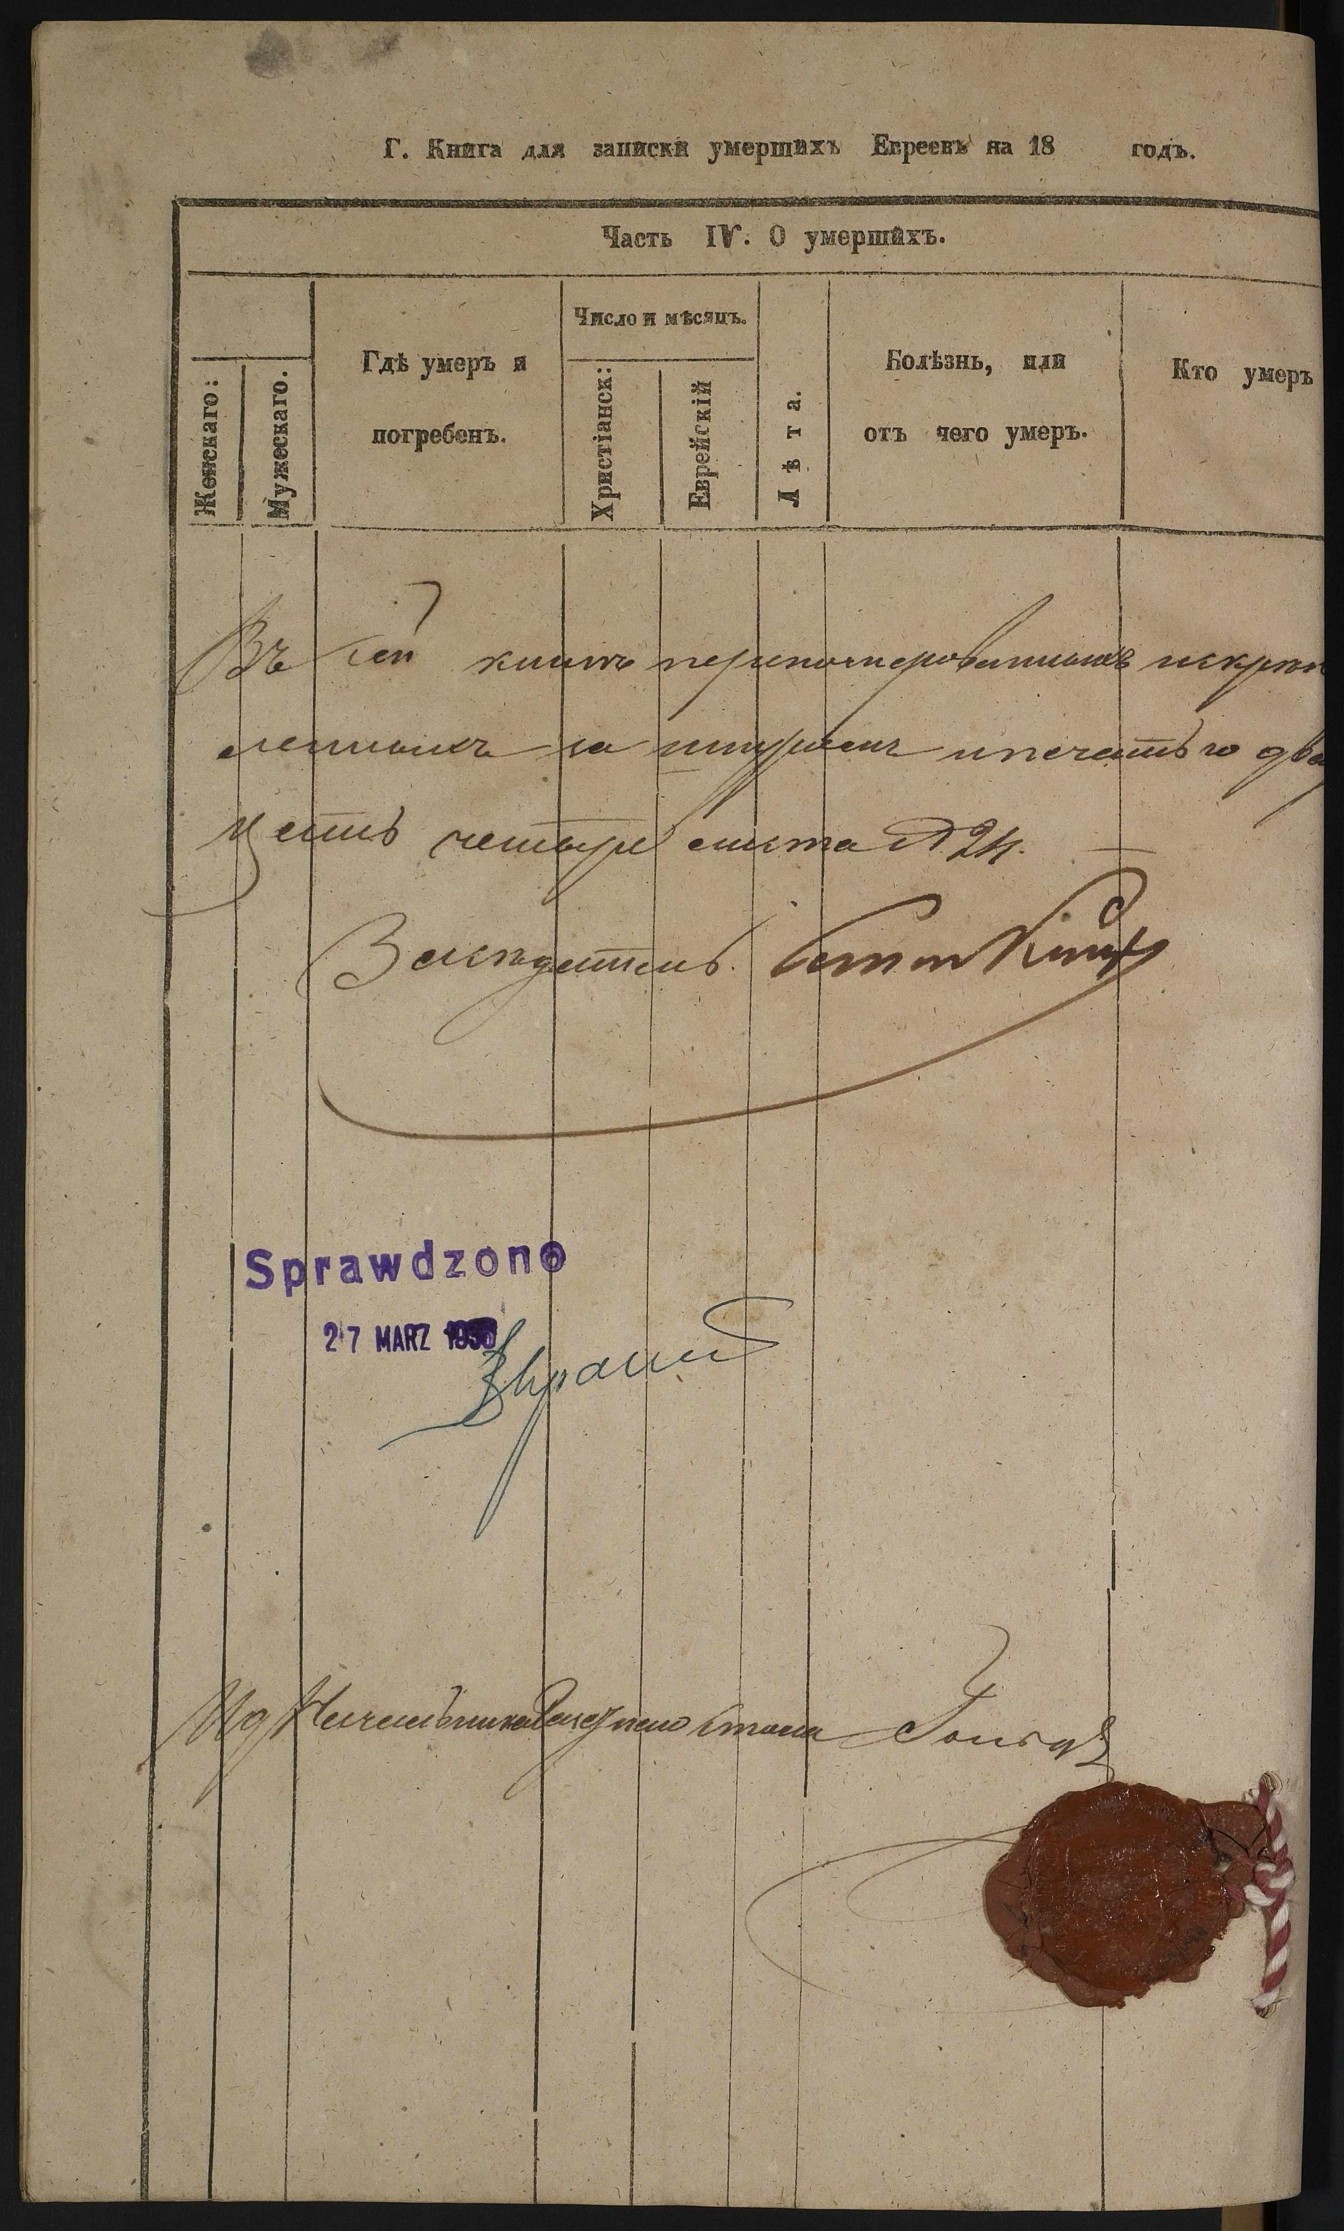 Г. Книга для записки умершихъ Евреевъ на 18 годъ.
Часть IV. О умершихъ.
Женскаго:
Мужескаго.
Гдѣ умеръ и
погребенъ.
Число и мѣсяцъ.
Христіанск:
Еврейскій
Лѣта.
Болѣзнь, или
отъ чего умеръ.
Кто умеръ
Въ сей книгѣ перенумерованныхъ искрѣп
ленныхъ за шнуромъ ипечатью два
цать четыре листа № 24.
Засѣдатель
Sprawdzono
27 MARZ 1930
Ид Начальника Стола